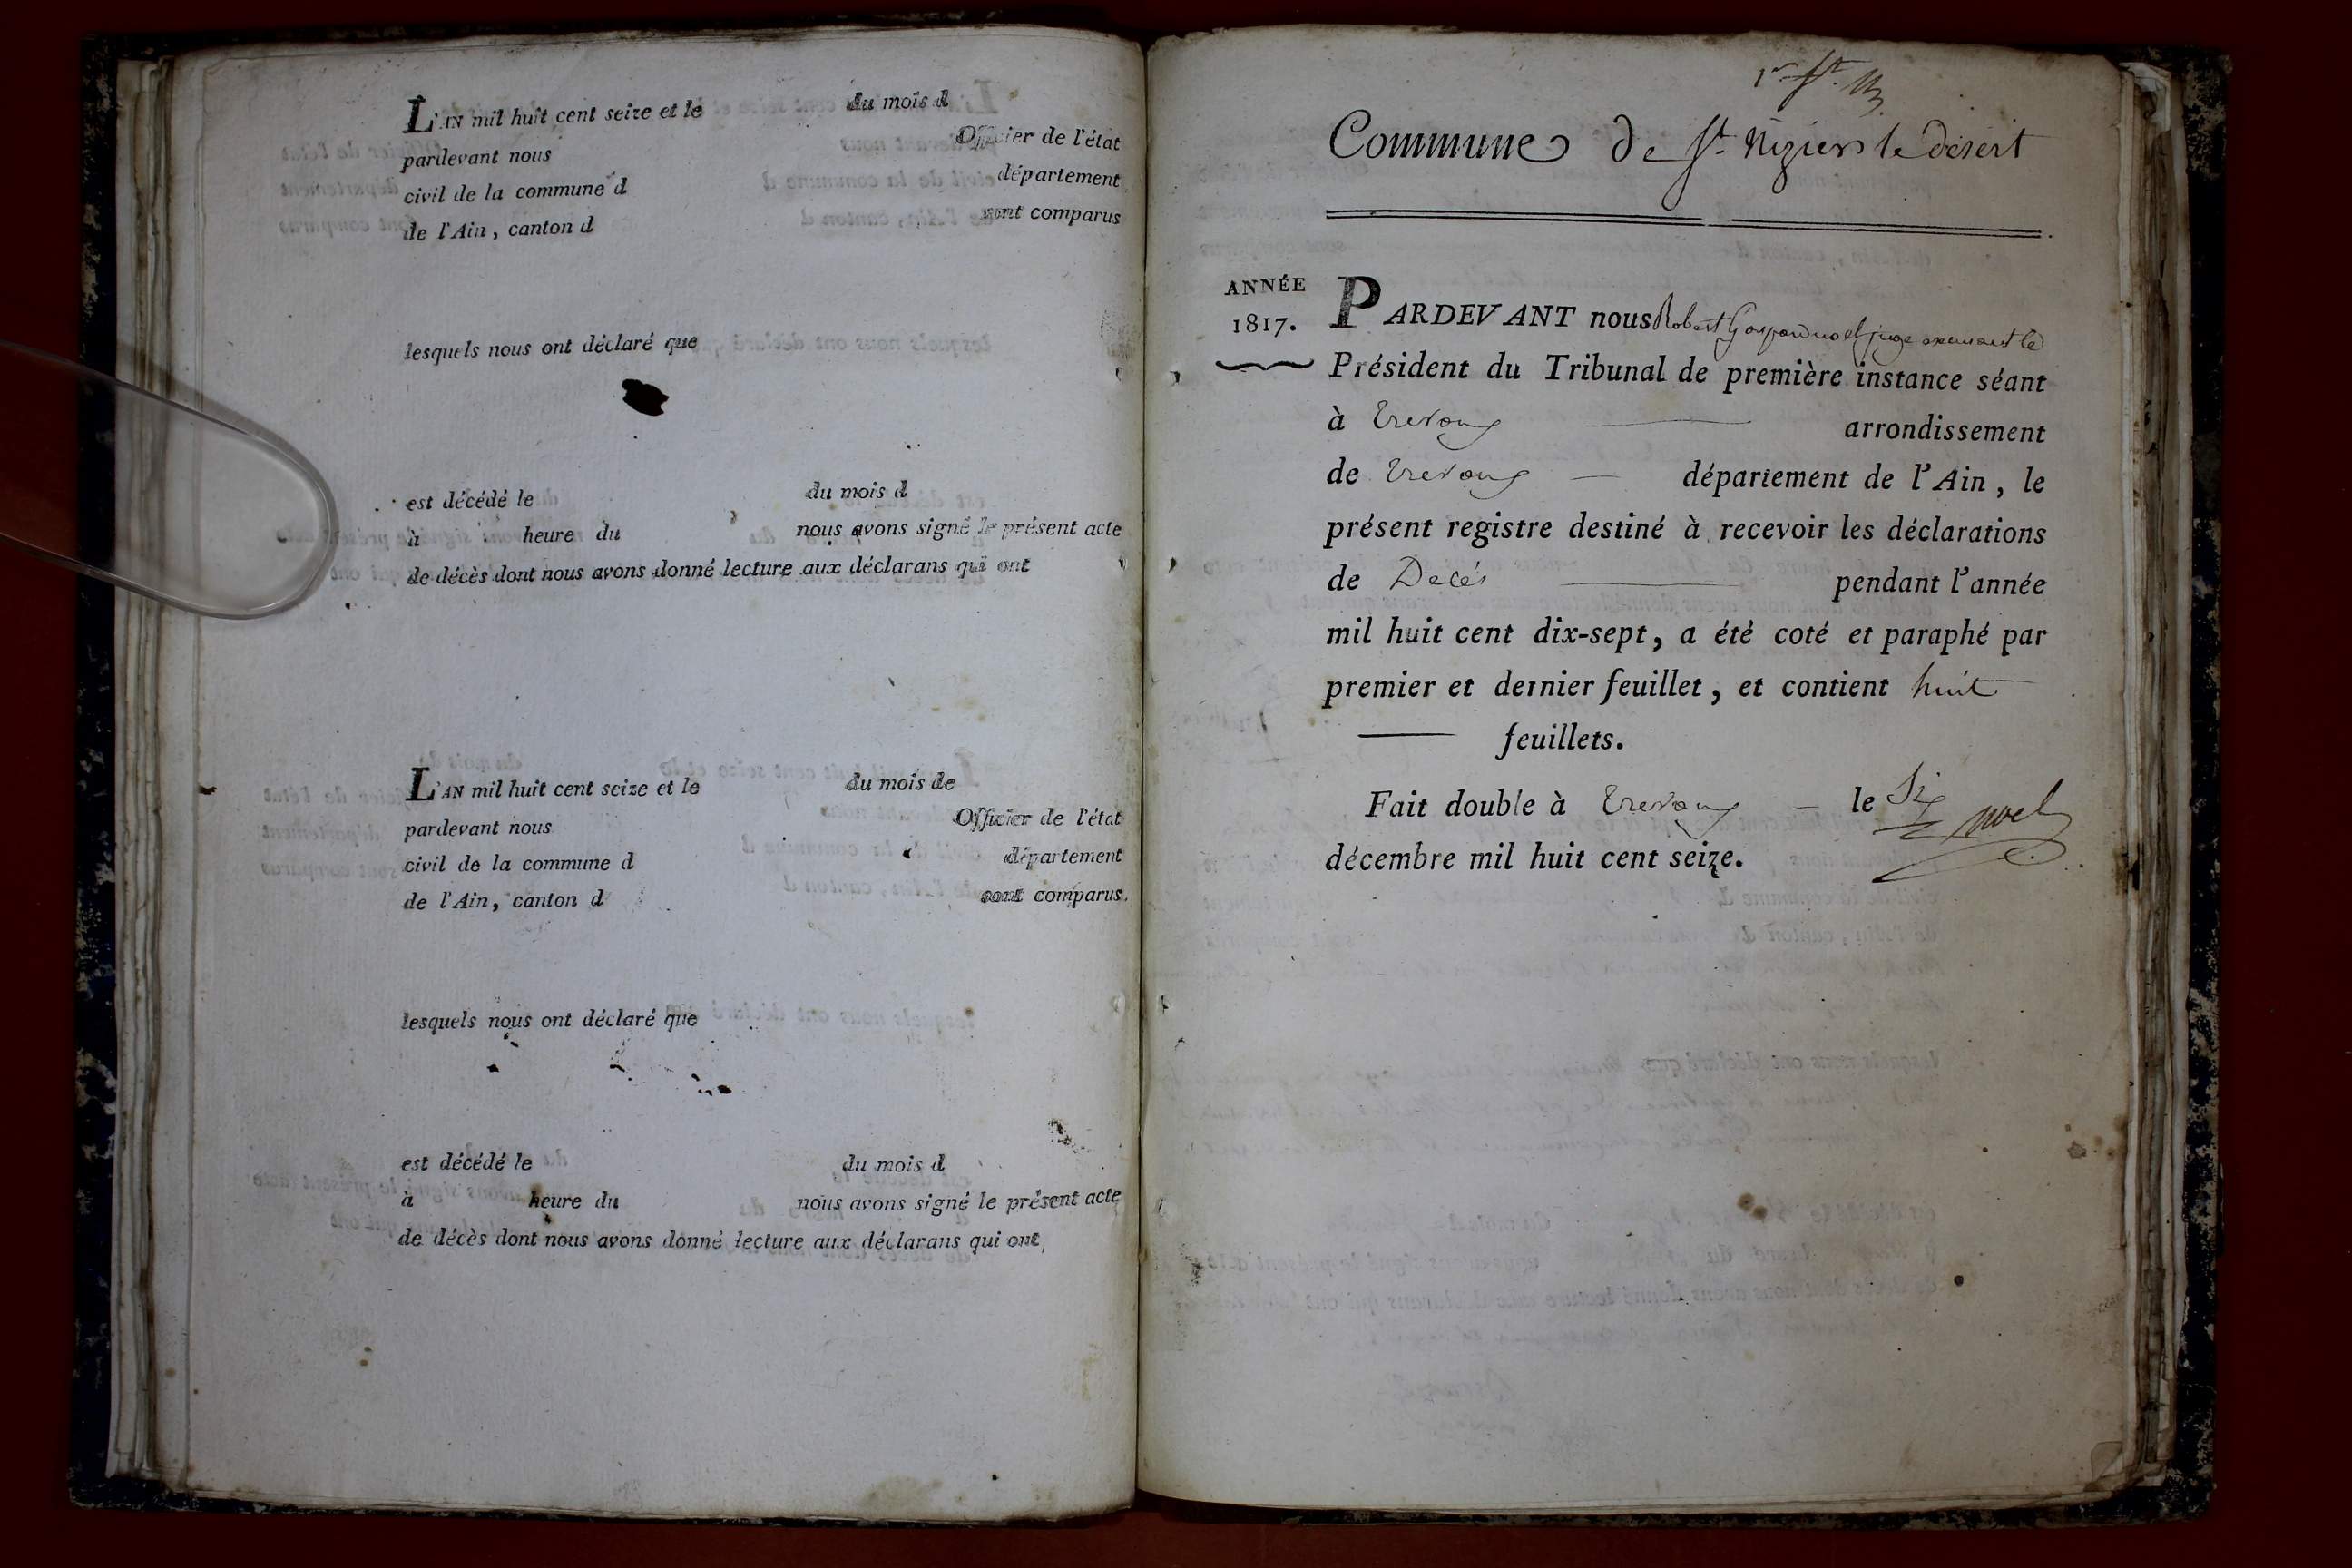 L'AN mil huit cent seize et le du mois d
pardevant nous Officier de l'état
civil de la commune d département
de l'Ain, canton d sont comparus
lesquels nous ont déclaré que
est décédé le du mois d
à heure du nous avons signé le présent acte
de décès dont nous avons donné lecture aux déclarans qui ont
L'AN mil huit cent seize et le du mois de
pardevant nous Officier de l'état
civil de la commune d département
de l'Ain, canton d sont comparus
lesquels nous ont déclaré que
est décédé le du mois d
à heure du nous avons signé le présent acte
de décès dont nous avons donné lecture aux déclarans qui ont
1er ft.
Commune de St. Nizier le désert
ANNÉE
1817.
PARDEVANT nous Robert Gaspard noel juge exerçant le
Président du Tribunal de première instance séant
à Trevoux arrondissement
de Trevoux département de l'Ain, le
présent registre destiné à recevoir les déclarations
de Décés pendant l'année
mil huit cent dix-sept, a été coté et paraphé par
premier et dernier feuillet, et contient huit
feuillets.
Fait double à Trevoux le Six
décembre mil huit cent seize.
noel